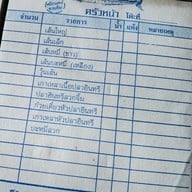 ครัวหน้า โต๊ะที่
จำนวน รายการ น้ำ แห้ง หมายเหตุ
เส้นใหญ่
เส้นเล็ก
เส้นหมี่ (ขาว)
เส้นบะหมี่ (เหลือง)
วุ้นเส้น
เกาเหลาเนื้อปลาอินทรี
ปลาอินทรีลวกจิ้ม
ก๋วยเตี๋ยวหัวปลาอินทรี
เกาเหลาหัวปลาอินทรี
บะหมี่ลวก